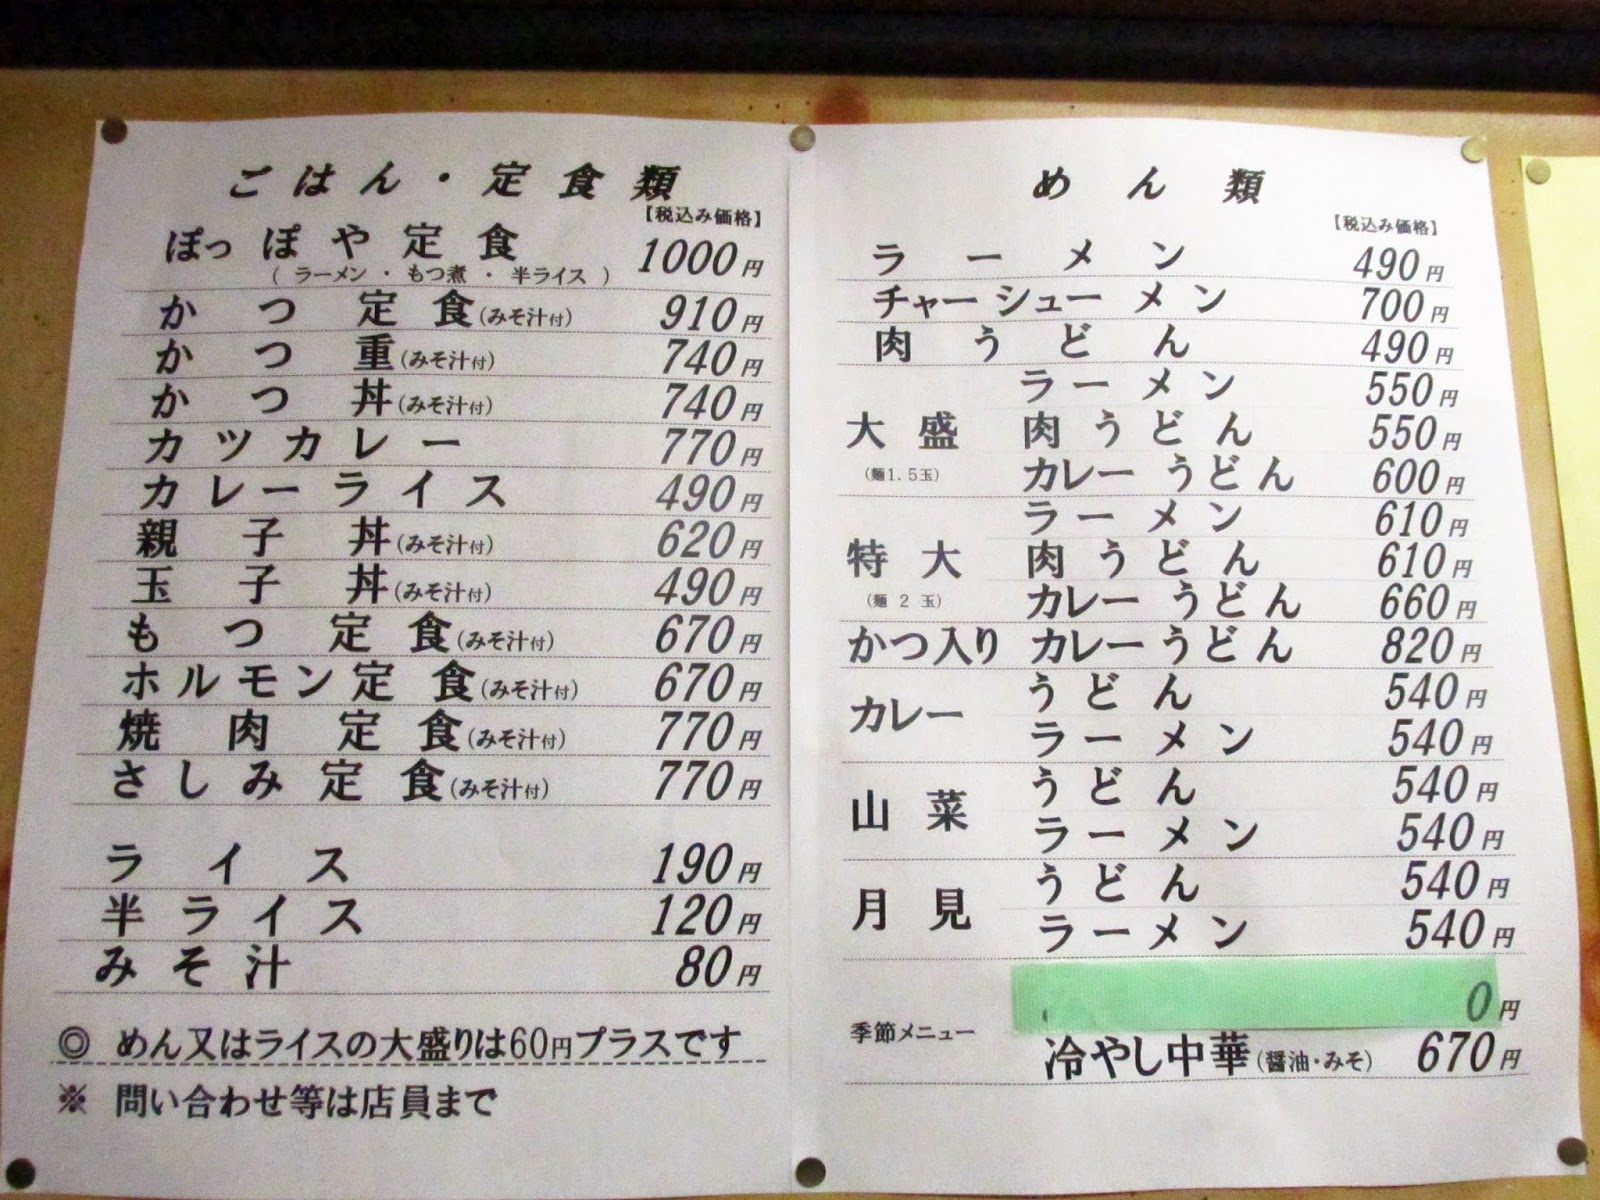 ごはん・定食類
【税込み価格】
ぽっぽや定食 1000円
(ラーメン・もつ煮・半ライス)
かつ定食(みそ汁付) 910円
かつ重(みそ汁付) 740円
かつ丼(みそ汁付) 740円
カツカレー 770円
カレーライス 490円
親子丼(みそ汁付) 620円
玉子丼(みそ汁付) 490円
もつ定食(みそ汁付) 670円
ホルモン定食(みそ汁付) 670円
焼肉定食(みそ汁付) 770円
さしみ定食(みそ汁付) 770円
ライス 190円
半ライス 120円
みそ汁 80円
◎ めん又はライスの大盛りは60円プラスです
※ 問い合わせ等は店員まで
めん類
【税込み価格】
ラーメン 490円
チャーシューメン 700円
肉うどん 490円
大盛
(麺1.5玉)
ラーメン 550円
肉うどん 550円
カレーうどん 600円
特大
(麺2玉)
ラーメン 610円
肉うどん 610円
カレーうどん 660円
かつ入り カレーうどん 820円
カレー
うどん 540円
ラーメン 540円
山菜
うどん 540円
ラーメン 540円
月見
うどん 540円
ラーメン 540円
季節メニュー
0円
冷やし中華(醤油・みそ) 670円